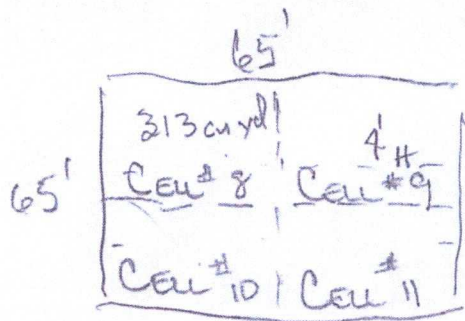 65'
313 cu yd
4' H
65'
Cell #8 Cell #9
Cell #10 Cell #11